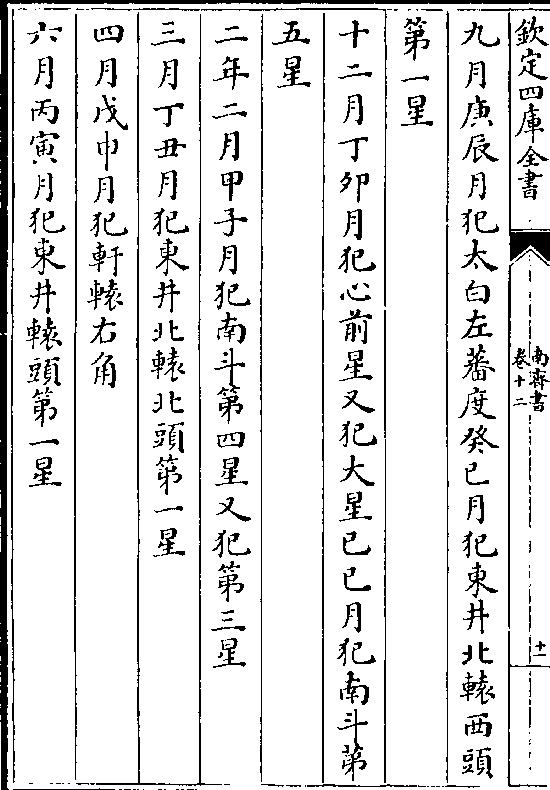 欽定四庫全書
南齊書
卷十二
十一
九月庚辰月犯太白左蕃度癸巳月犯東井北轅西頭
第一星
十二月丁卯月犯心前星又犯大星己巳月犯南斗第
五星
二年二月甲子月犯南斗第四星又犯第三星
三月丁丑月犯東井北轅北頭第一星
四月戊申月犯軒轅右角
六月丙寅月犯東井轅頭第一星